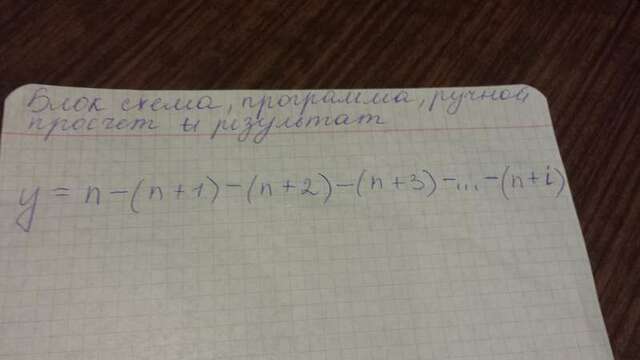 Блок схема, программа, ручной
просчет и результат
y = n - (n + 1) - (n + 2) - (n + 3) - ... - (n + i)